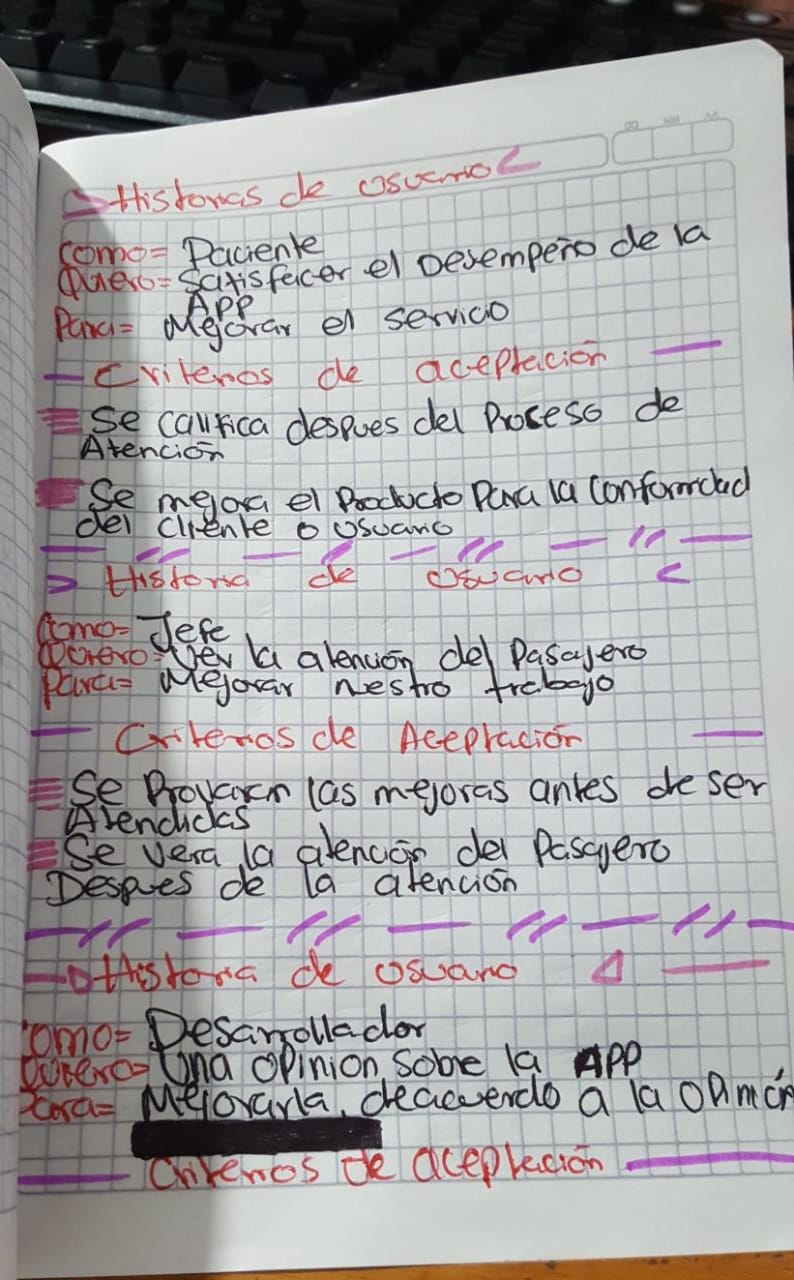 Historias de usuario
Como= Paciente
Quiero= Satisfacer el Desempeño de la
APP
Para= Mejorar el servicio
Criterios de aceptación
Se califica despues del Proceso de
Atención
Se mejora el Producto Para la Conformidad
del cliente o usuario
Historia de usuario
Como= Jefe
Quiero= Ver la atención del Pasajero
Para= Mejorar nestro trabajo
Criterios de Aceptación
Se las mejoras antes de ser
Atendidas
Se vera la atención del Pasajero
Despues de la atención
Historia de usuario
Como= Desarrollador
Quiero= Una opinion sobre la APP
Para= Mejorarla, deacuerdo a la opinión
Criterios de aceptación